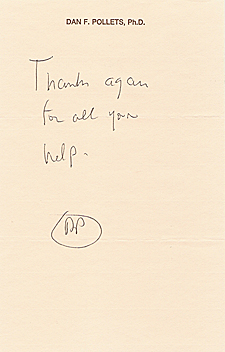 DAN F. POLLETS, Ph.D.
Thanks again
for all your
help.
DP